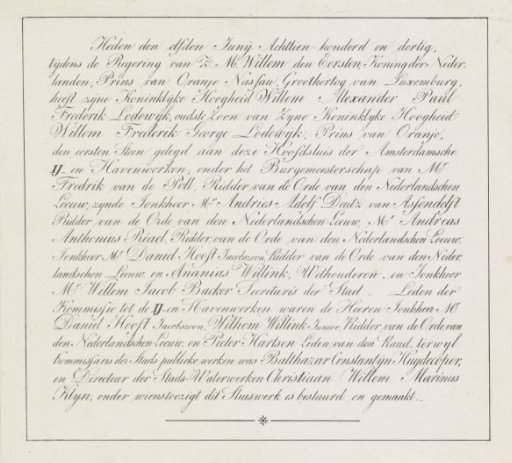 Heden den elfden Junij Achttien honderd en dertig,
tijdens de Regering van Z. M. Willem den Eersten, Koning der Neder-
landen, Prins van Oranje Nassau, Groothertog van Luxemburg,
heeft zyne Koninklyke Hoogheid Willem Alexander Paul
Frederik Lodewyk, oudste Zoon van Zyne Koninklyke Hoogheid
Willem Frederik George Lodewyk, Prins van Oranje,
den eersten Steen gelegd aan deze Hoofdsluis der Amsterdamsche
IJ- en Havenwerken, onder het Burgemeesterschap van Mr.
Fredrik van de Poll, Ridder van de Orde van den Nederlandschen
Leeuw, zynde Jonkheer Mr. Andries Adolf Deutz van Assendelft
Ridder van de Orde van den Nederlandschen Leeuw, Mr. Andreas
Anthonius Reael, Ridder van de Orde van den Nederlandschen Leeuw,
Jonkheer Mr. Daniel Hooft Jacobszoon, Ridder van de Orde van den Neder-
landschen Leeuw, en Ananias Willink, Wethouderen, en Jonkheer
Mr. Willem Jacob Backer Secretaris der Stad. Leden der
Kommissie tot de IJ- en Havenwerken waren de Heeren Jonkheer Mr.
Daniel Hooft Jacobszoon, Wilhem Willink Junior, Ridder van de Orde van
den Nederlandschen Leeuw, en Pieter Hartsen Leden van den Raad, terwyl
Kommissaris der Stads publieke werken was Balthazar Constantyn Huydecoper,
en Directeur der Stads-Waterwerken Christiaan Willem Marinus
Klyn, onder wiens toezigt dit Sluiswerk is bestuurd en gemaakt.